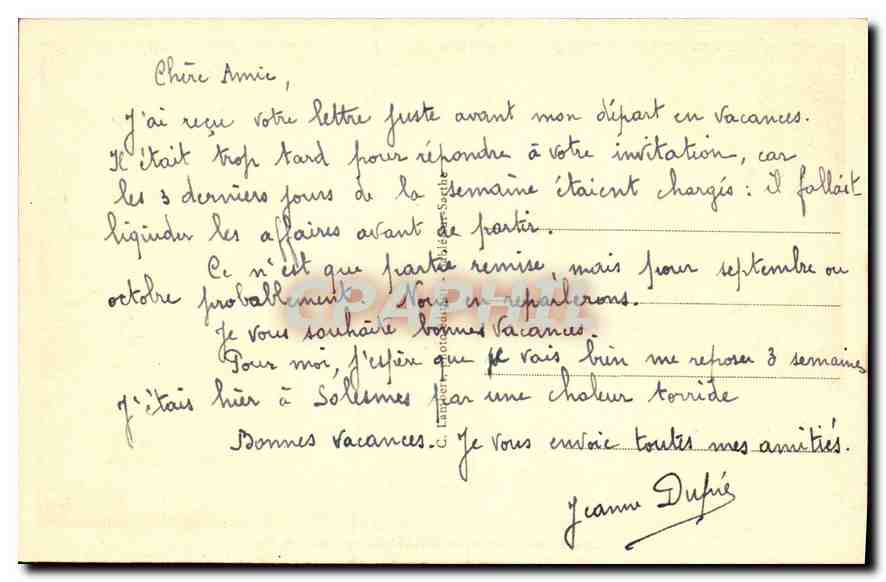 Chère Amie,
J'ai reçu votre lettre juste avant mon départ en vacances.
Il était trop tard pour répondre à votre invitation, car
les 3 derniers jours de la semaine étaient chargés : il fallait
liquider les affaires avant de partir.
Ce n'est que partie remise, mais pour septembre ou
octobre probablement. Nous en reparlerons.
Je vous souhaite bonnes vacances.
Pour moi, j'espère que je vais bien me reposer 3 semaines
J'étais hier à Solesmes par une chaleur torride
Bonnes vacances. Je vous envoie toutes mes amitiés.
Jeanne Dufié
C. Lambert, photo-éditeur - Sablé-sur-Sarthe
CPAPHIL